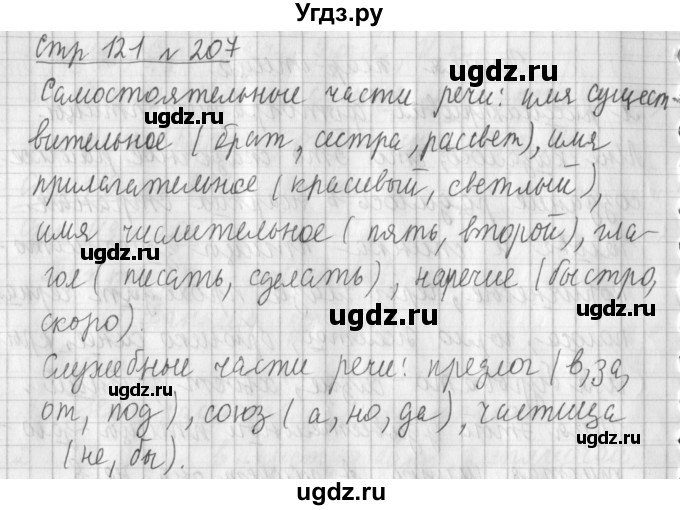 Угдз.ру
стр 121 № 207
ugdz.ru
Самостоятельные части речи: имя сущест-
вительное (брат, сестра, рассвет), имя
ugdz.ru
прилагательное (красивый, светлый),
имя числительное (пять, второй), гла-
ugdz.ru
гол (писать, сделать), наречие (быстро,
скоро).
ugdz.ru
Служебные части речи: предлог (в, за,
ugdz.ru
от, под), союз (а, но, да), частица
ugdz.ru
(не, бы).
ugdz.ru